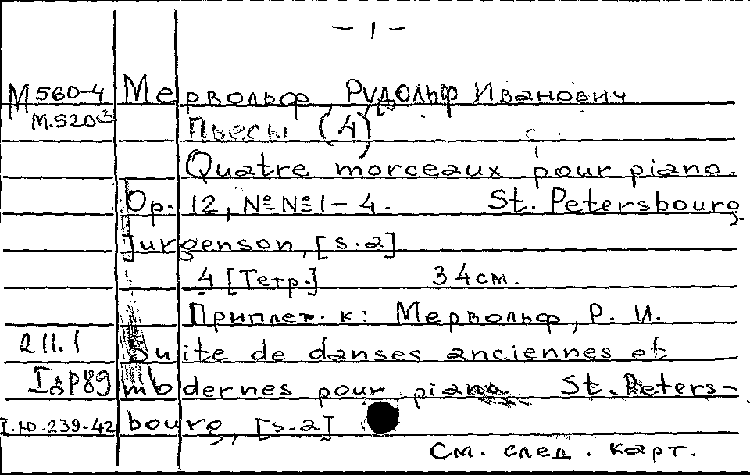 – 1 –
М 560-4 Мервольф, Рудольф Иванович
М.520³ Пьесы (4)
Quatre morceaux pour piano.
Op. 12, №№1–4. St. Petersbourg
Jurgenson, [s.a].
4 [Тетр.] 34см.
Приплет. к: Мервольф, Р. И.
2 11.1 Suite de danses anciennes et
I др89 modernes pour piano. St. Peters-
I.Ю.-239-42 bourg, [s.a]
См. след. карт.